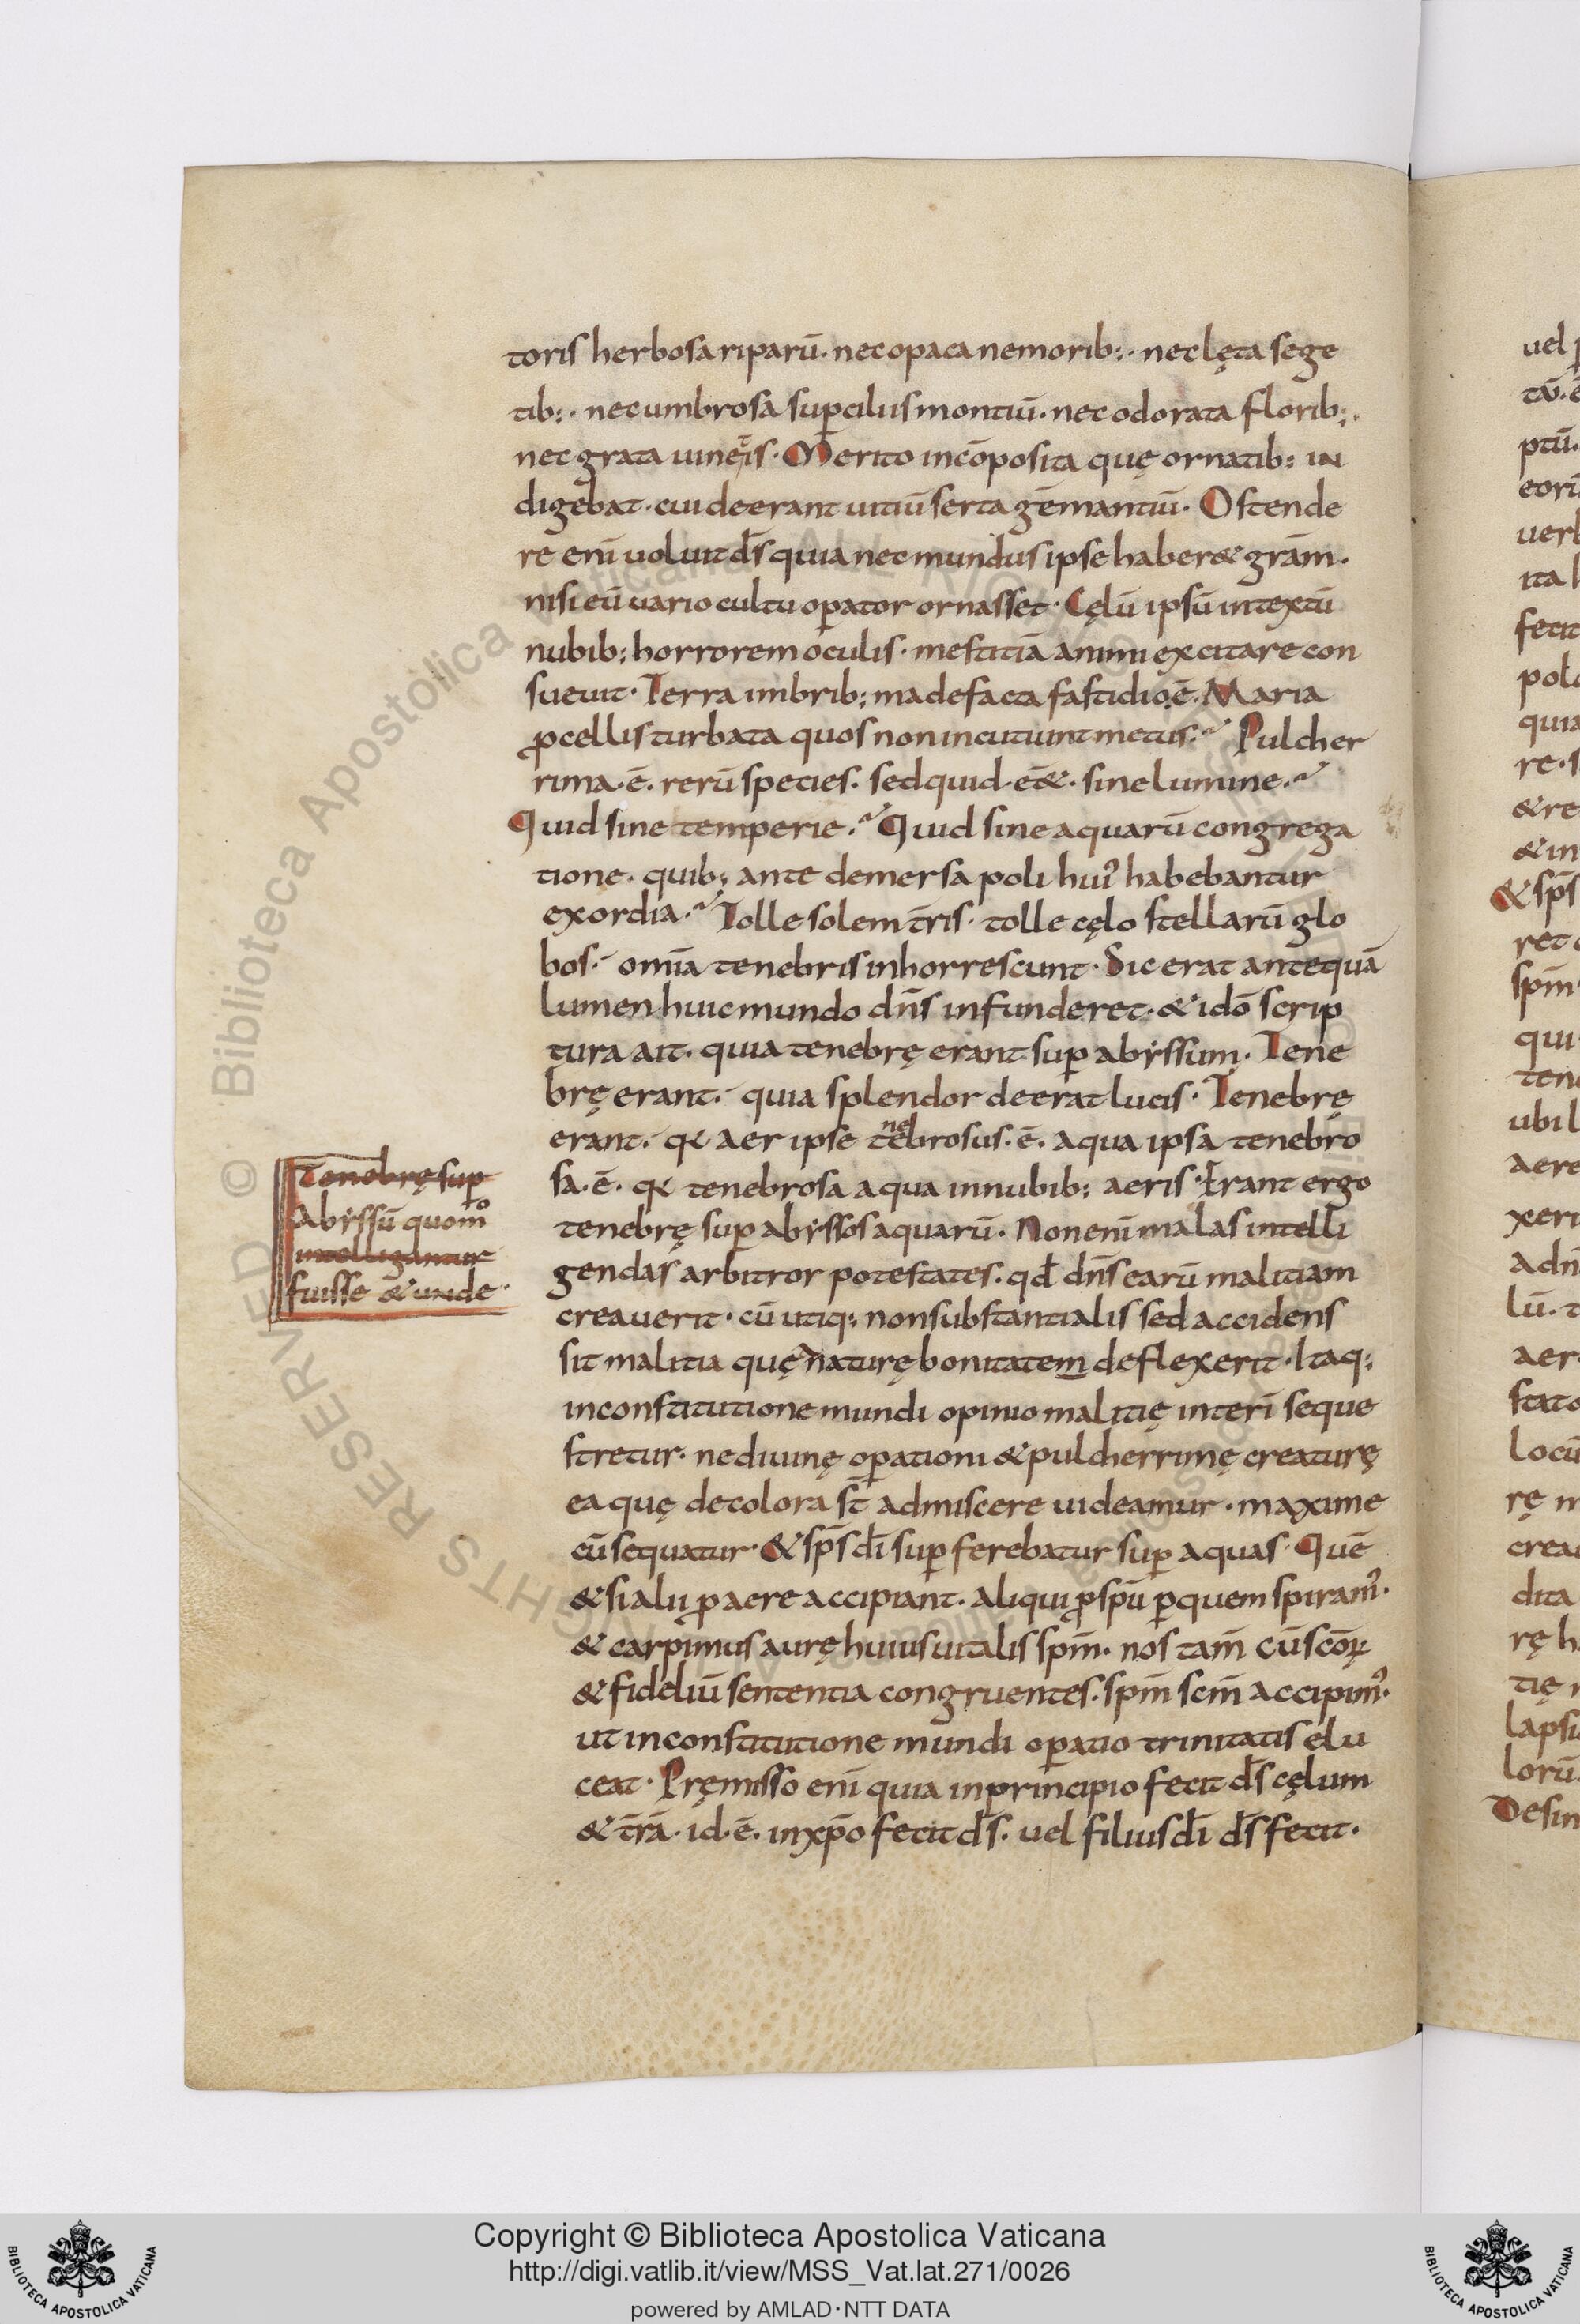 toris herbosa riparū. nec opaca nemorib:. nec lęta sege
tib:. nec umbrosa suꝑciliis montiū. nec odorata florib;.
nec grata uineis. Merito incōposita quę ornatib: in
digebat. cui deerant uitiū serta gēmantiū. Ostende
re enī uoluit d̄s quia nec mundus ipse haber& grām.
nisi eū uario cultu oꝑator ornasset. Cęlū ipsū intextū
nubib: horrorem oculis. mestitiā animi excitare con
sueuit. Terra imbrib; madefacta fastidio ē. Maria
ꝓcellis turbata quos non incutiunt metus. Pulcher
rima. ē. rerū species. sed quid. e&̄. sine lumine.
Quid sine temperie. Quid sine aquarū congrega
tione. quib; ante demersa poli hui' habebantur
exordia. Tolle solem t̄ris. tolle cęlo stellarū glo
bos. omīa tenebris inhorrescunt. Sic erat antequā
lumen huic mundo dn̄s infunderet. & idō scrip
tura ait. quia tenebrę erant suꝑ abẏssum. Tene
brę erant. quia splendor deerat lucis. Tenebrę
erant. qꝛ aer ipse tenebrosus. ē. aqua ipsa tenebro
sa. ē. qꝛ tenebrosa aqua in nubib: aeris. Erant ergo
tenebrę suꝑ abẏssos aquarū. Non enī malas intelli
gendas arbitror potestates. qđ dn̄s earū malitiam
creauerit. cū utiq; non substantialis sed accidens
sit malitia quę a naturę bonitatem deflexerit. Itaq;
in constitutione mundi opinio malitię interī seque
stretur. ne diuinę oꝑationi & pulcherrimę creaturę
ea quę decolora st̄ admiscere uideamur. maxime
cū sequatur. & sp̄s dī suꝑ ferebatur suꝑ aquas. Quē
& si alii ꝓ aere accipiant. aliqui ꝓ spū ꝑ quem spiram'.
& carpimus aurę huius uitalis spm̄. nos tam̄ cū scōꝝ
& fideliū sententia congruentes. spm̄ scm̄ accipim'.
ut in constitutione mundi oꝑatio trinitatis elu
ceat. Pręmisso enī quia in principio fecit d̄s cęlum
& t̄rā. id. ē. in xp̄o fecit d̄s. uel filius dī d̄s fecit.
Tenebrę suꝑ
Abẏssū quom̊
intelligantur
fuisse & unde.
uel
ptū.
uer
ita
fecit
quia
re. s
& re
& in
& sp̄s
spm̄
qui
ubi l
aere
xeri
lū. t
aer
stato
locū
crea
dita
rę h
tię
laps
lorū.
Desin
© Biblioteca Apostolica Vaticana ALL RIGHTS RESERVED
Copyright © Biblioteca Apostolica Vaticana
http://digi.vatlib.it/view/MSS_Vat.lat.271/0026
powered by AMLAD·NTT DATA
BIBLIOTECA APOSTOLICA VATICANA
BIBLIOTECA APOSTOLICA VATICANA